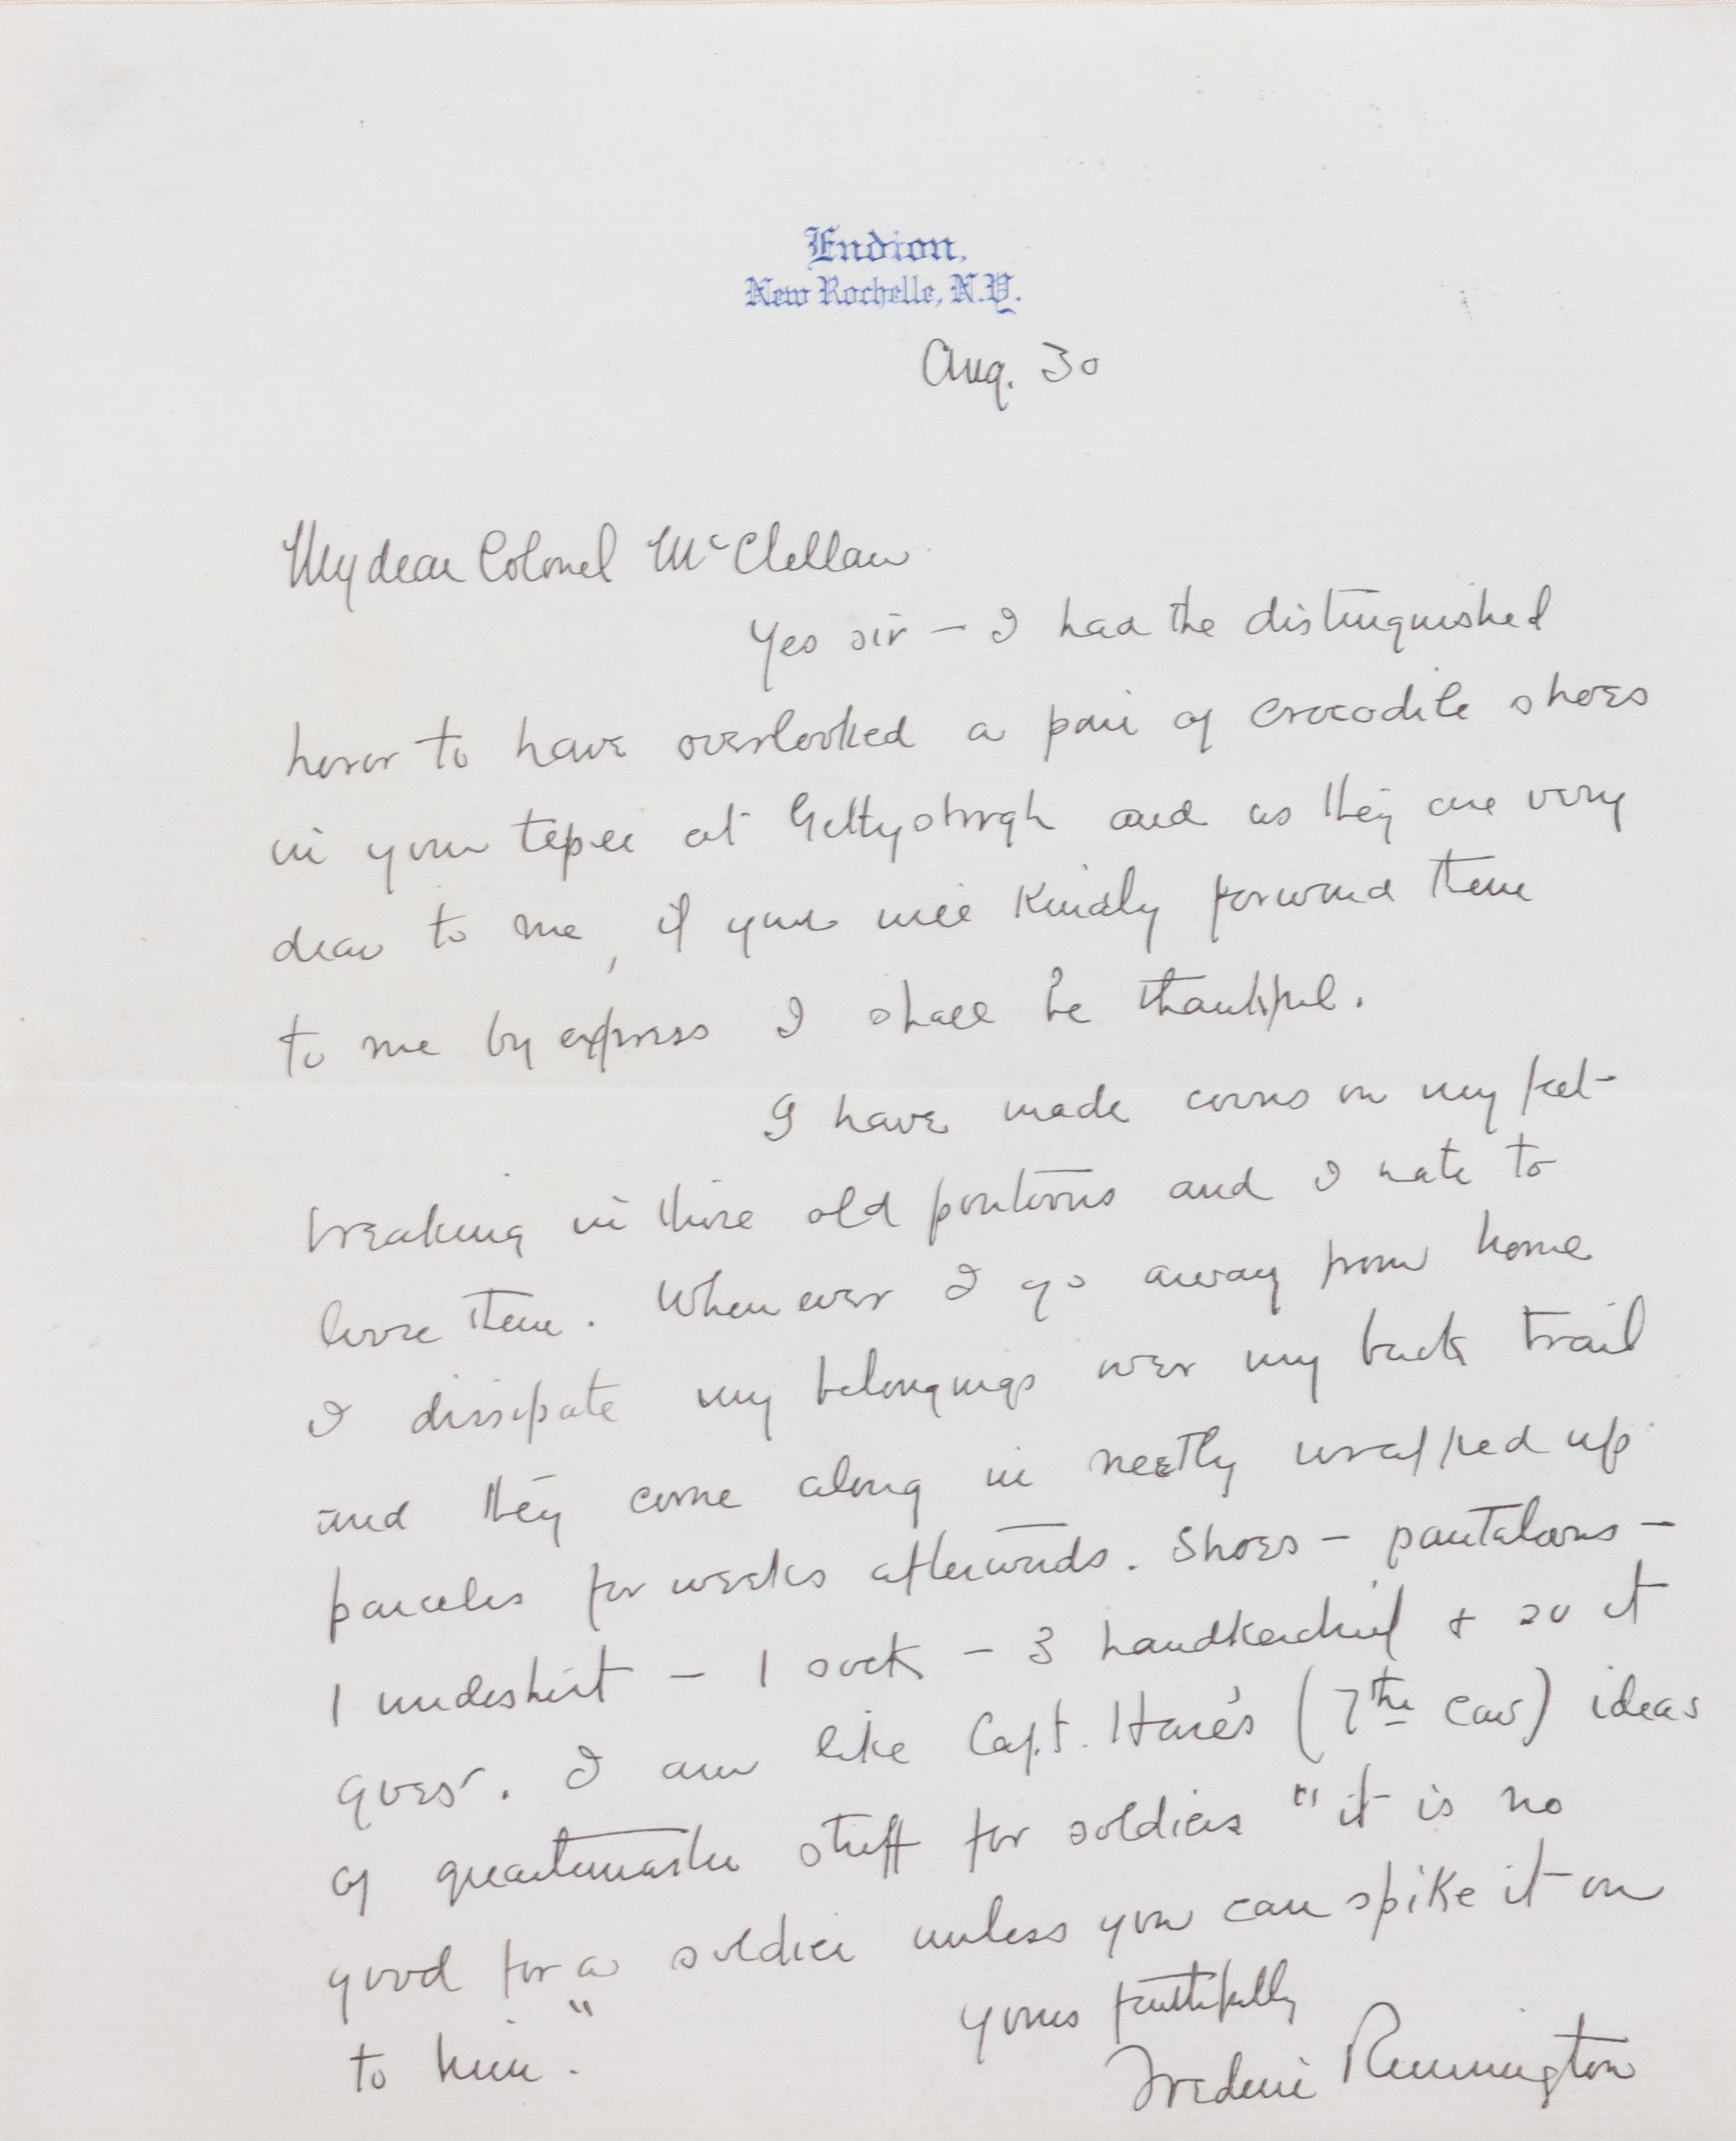 Endion,
New Rochelle, N.Y.
Aug. 30
My dear Colonel McClellan
Yes sir — I had the distinguished
honor to have overlooked a pair of crocodile shoes
in your tepee at Gettysburgh and as they are very
dear to me, if you will kindly forward them
to me by express I shall be thankful.
I have made corns on my feet
breaking in those old pontoons and I hate to
loose them. Whenever I go away from home
I dissipate my belongings over my back trail
and they come along in neetly wrapped up
parcels for weeks afterwards. Shoes — pantaloons —
1 undershirt — 1 sock — 3 handkerchief & so it
goes. I am like Capt. Hare's (7th cav) ideas
of quartermaster stuff for soldiers "it is no
good for a soldier unless you can spike it on
to him."
Yours faithfully
Frederic Remington